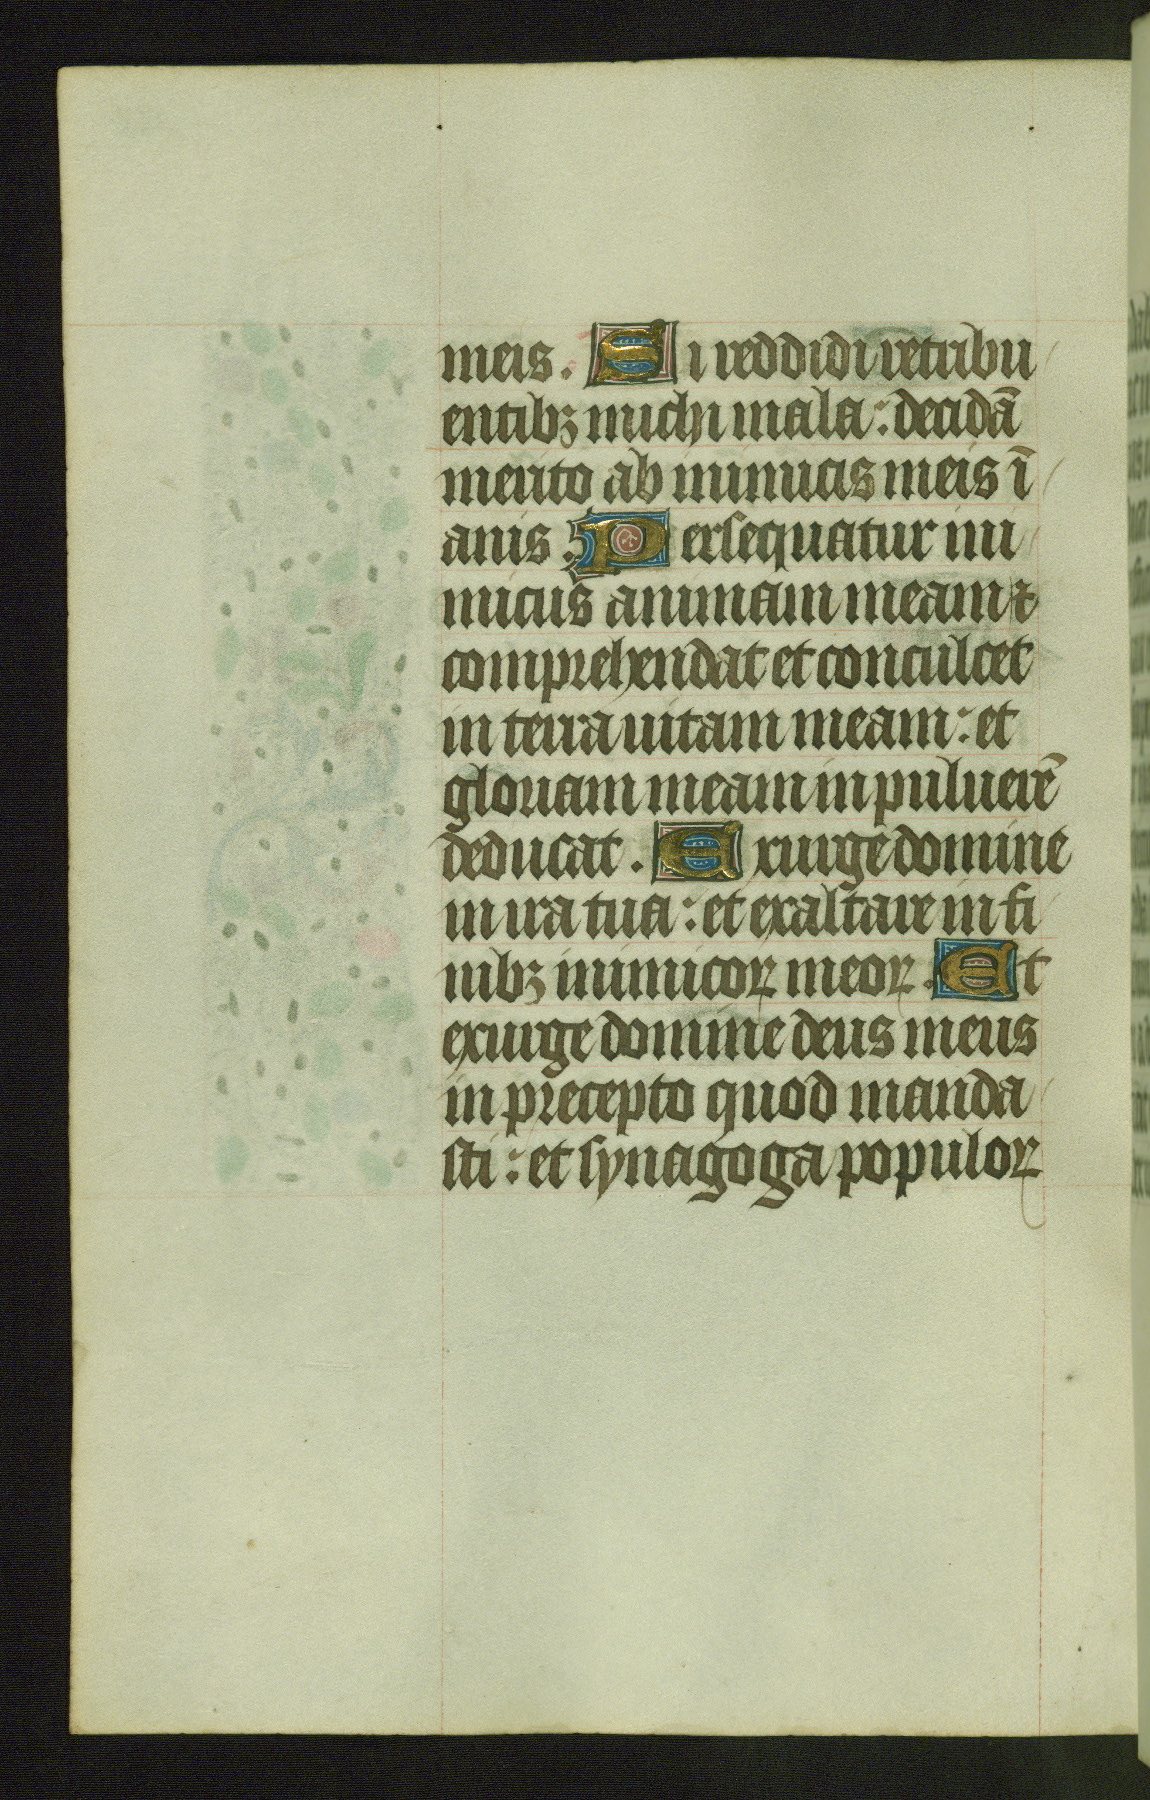 meis. Si reddidi retribu
entibꝫ michi mala: decidā
merito ab inimicis meis ī
anis. Persequatur ini
micus animam meam ⁊
comprehendat et conculcet
in terra uitam meam: et
gloriam meam in puluerē
deducat. Exurge domine
in ira tua: et exaltare in fi
nibꝫ inimicoꝝ meoꝝ. Et
exurge domine deus meus
in precepto quod manda
sti: et synagoga populoꝝ